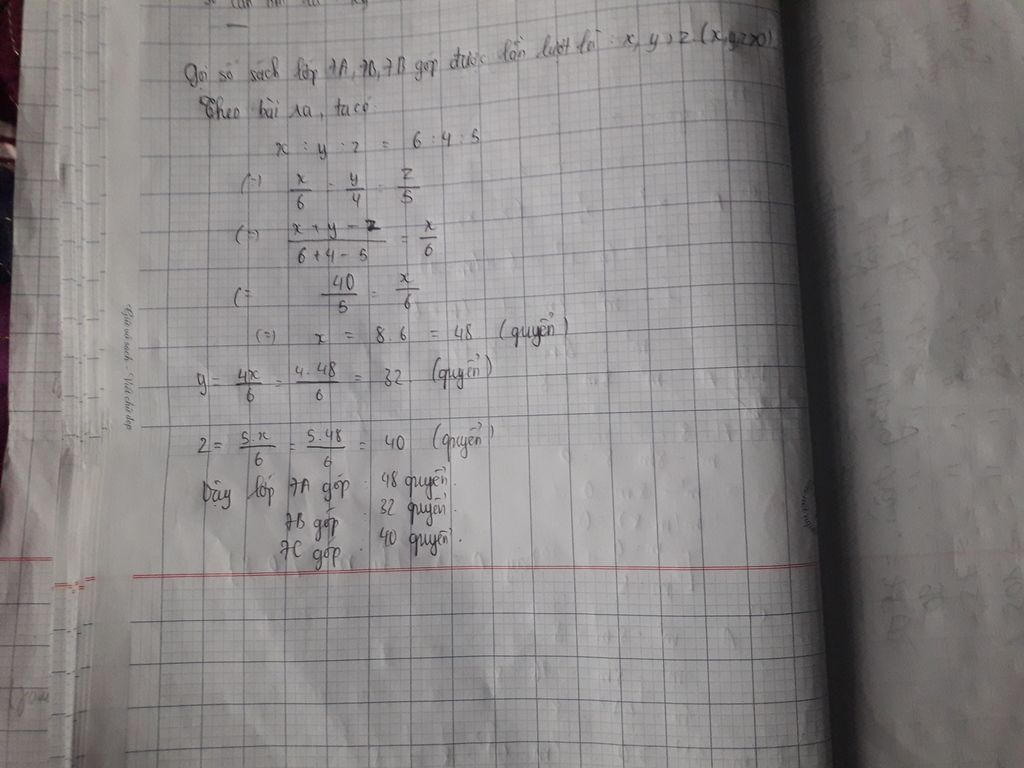 Gọi số sách lớp 7A, 7B, 7B góp được lần lượt là : x, y, z (x,y,z>0)
Theo bài ra, ta có:
x : y : z = 6 : 4 : 5
(=) x/6 = y/4 = z/5
(=) (x + y - z)/(6 + 4 - 5) = x/6
(= 40/5 = x/6
(=) x = 8.6 = 48 (quyển)
y = 4x/6 = 4.48/6 = 32 (quyển)
z = 5.x/6 = 5.48/6 = 40 (quyển)
Vậy lớp 7A góp : 48 quyển.
7B góp : 32 quyển.
7C góp : 40 quyển.
Giữ vở sạch - Viết chữ đẹp